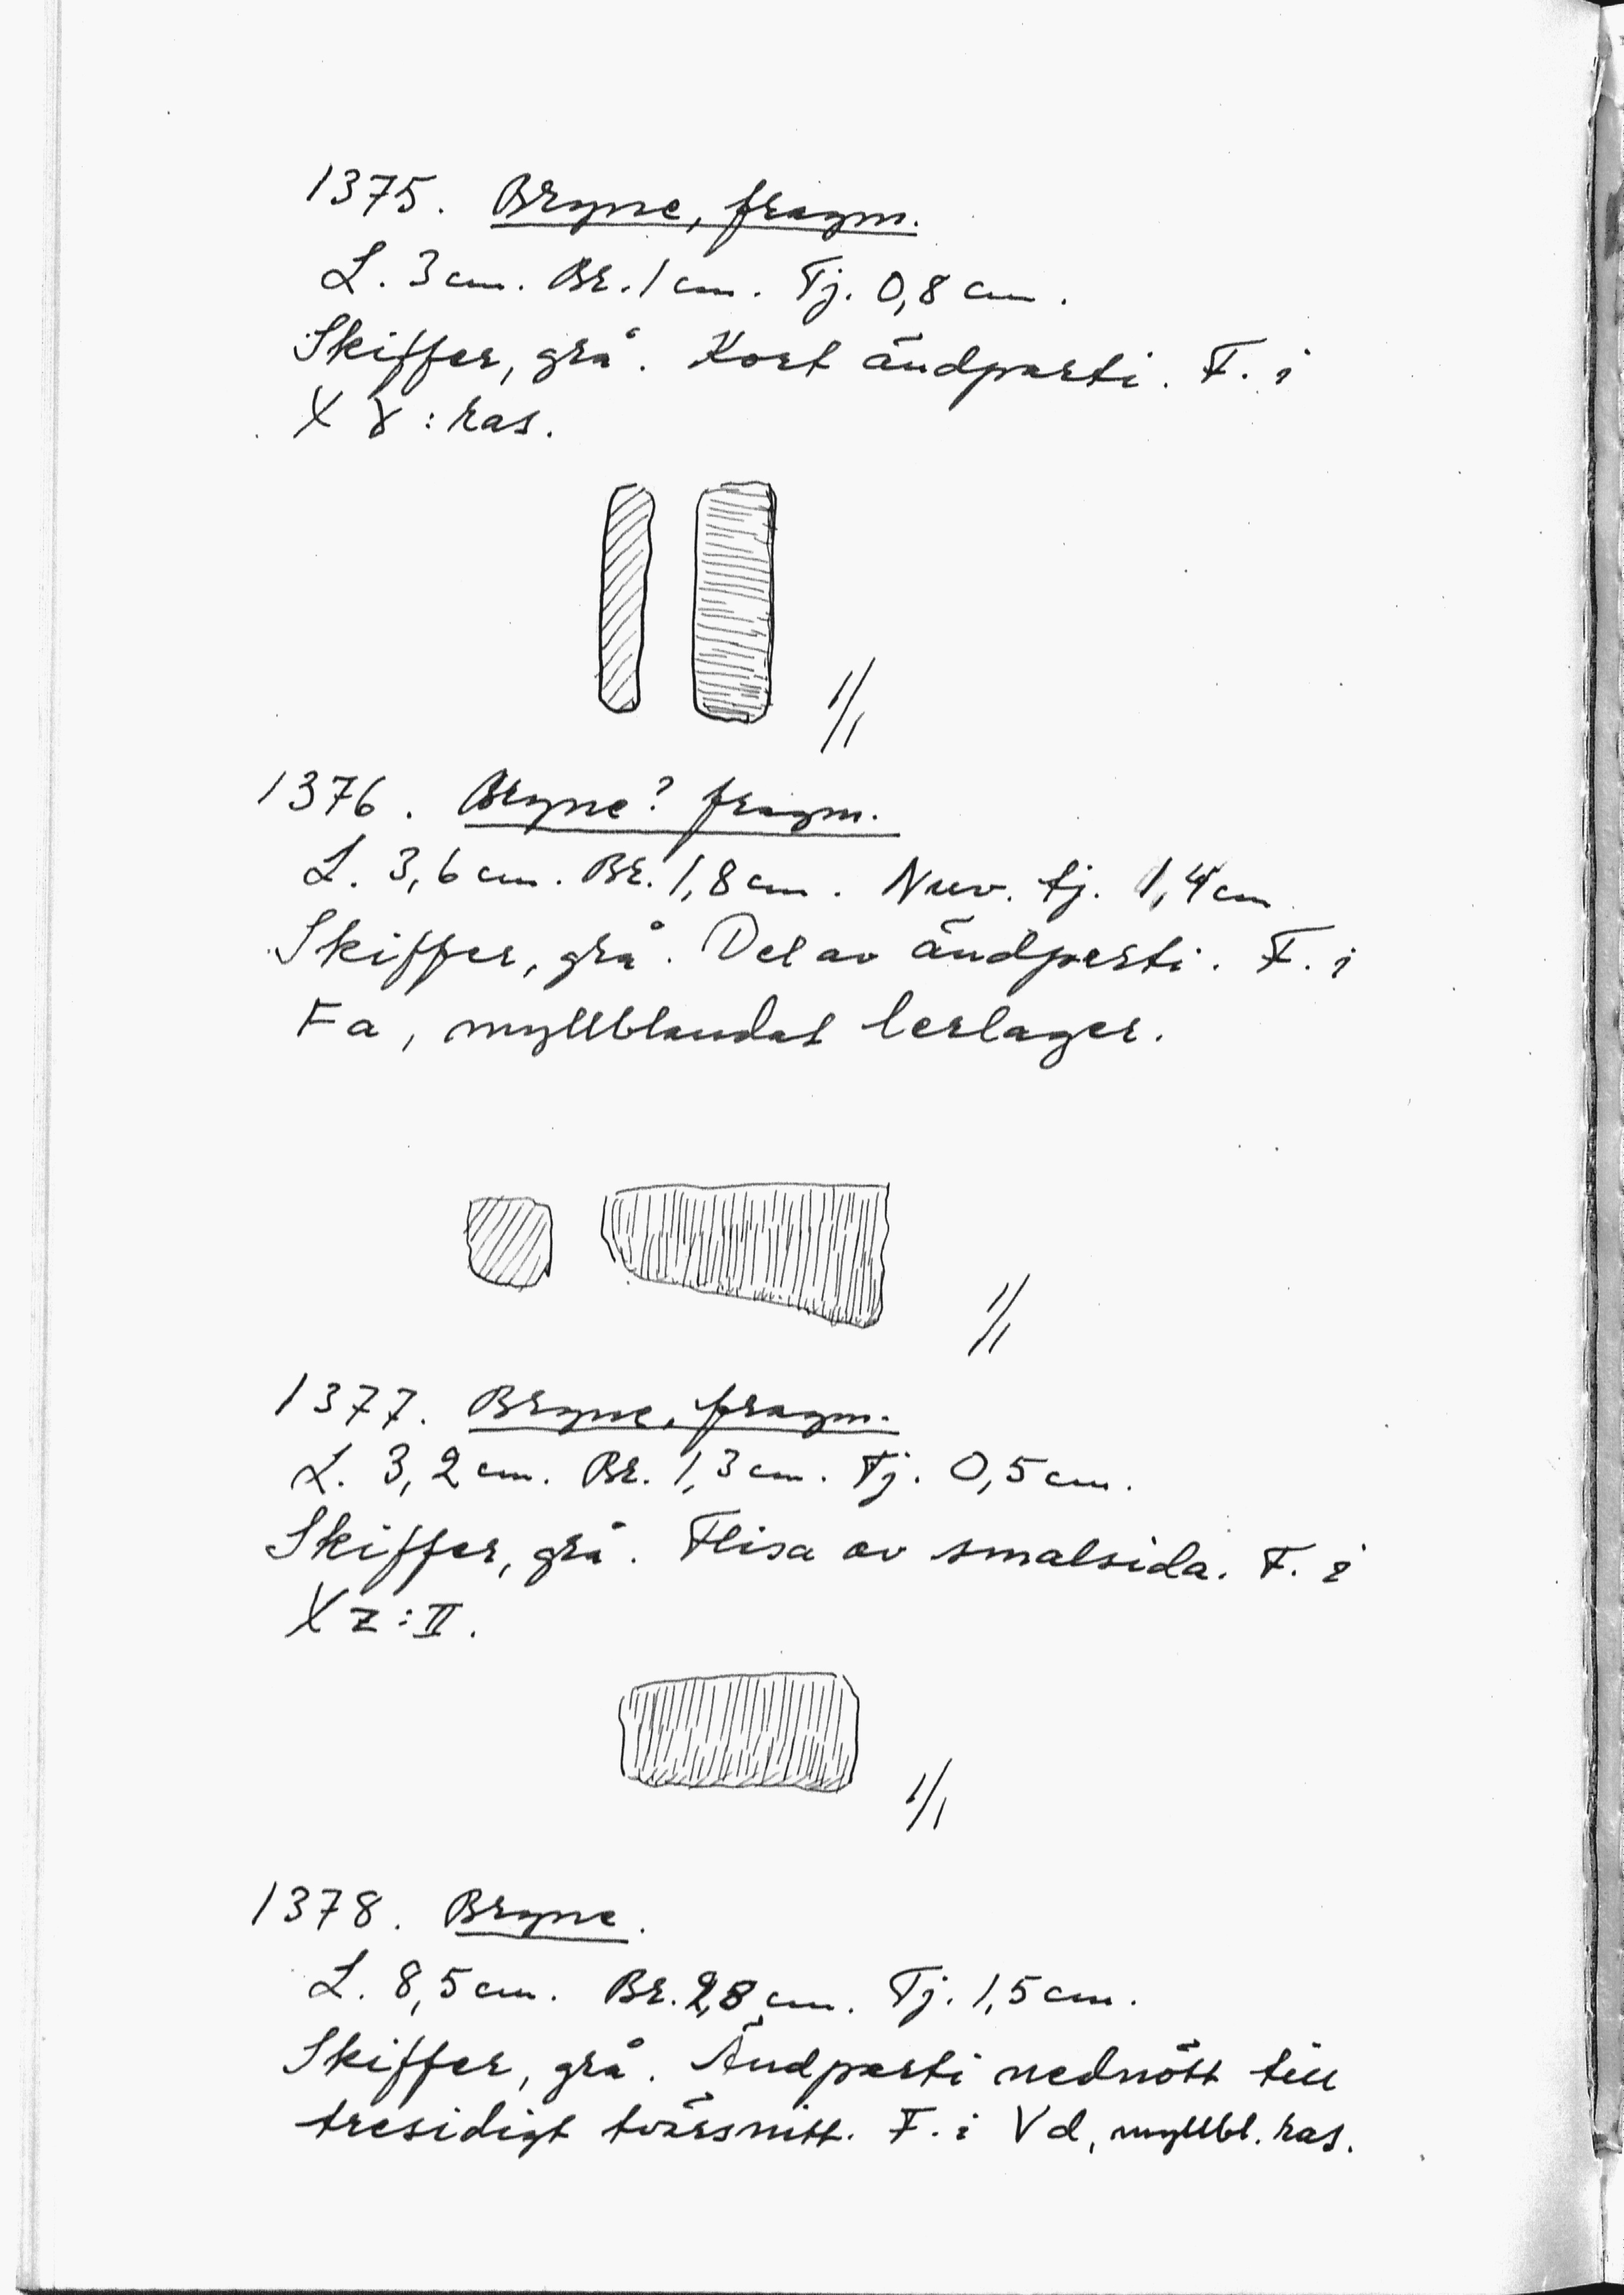 1375. Bryne, fragm.
L. 3 cm. Br. 1 cm. Tj. 0,8 cm.
Skiffer, grå. Kort ändparti. F. i
X γ : ras.
1/1
1376. Bryne? fragm.
L. 3,6 cm. Br. 1,8 cm. Nuv. tj. 1,4 cm
Skiffer, grå. Del av ändparti. F. i
Fa, myllblandat lerlager.
1/1
1377. Bryne, fragm.
L. 3,2 cm. Br. 1,3 cm. Tj. 0,5 cm.
Skiffer, grå. Flisa av smalsida. F. i
X z : II.
1/1
1378. Bryne.
L. 8,5 cm. Br. 2,8 cm. Tj. 1,5 cm.
Skiffer, grå. Ändparti nednött till
tresidigt tvärsnitt. F. i Vd, myllbl. ras.